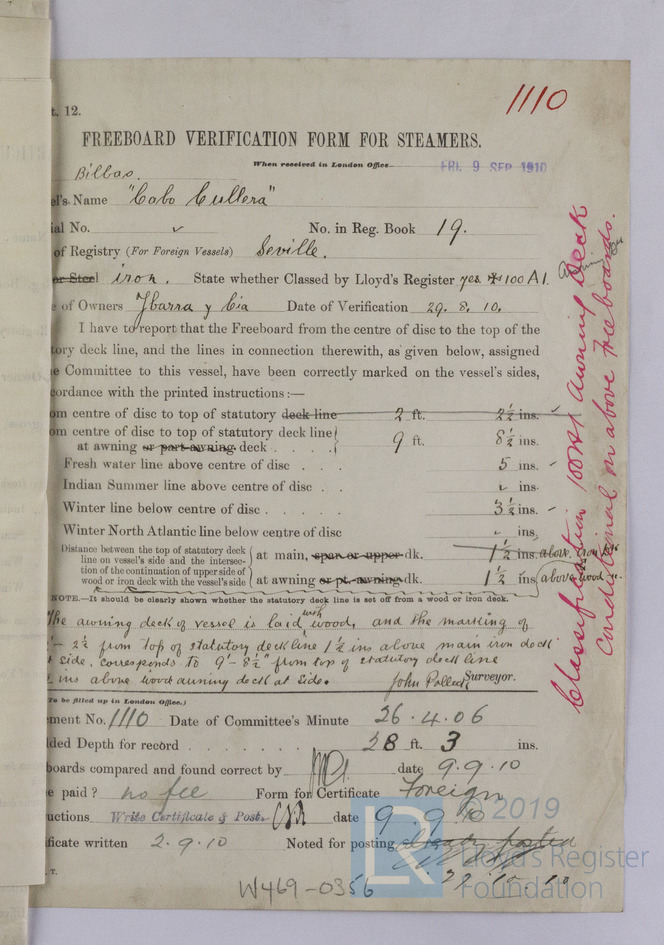 t. 12.
1110
FREEBOARD VERIFICATION FORM FOR STEAMERS.
When received in London Office. FRI. 9 SEP 1910
Bilbao.
el's Name "Cabo Cullera"
ial No. No. in Reg. Book 19.
of Registry (For Foreign Vessels) Seville.
or Steel iron. State whether Classed by Lloyd's Register yes ✠100 A1.
e of Owners Ybarra y Cia Date of Verification 29. 8. 10.
I have to report that the Freeboard from the centre of disc to the top of the
tory deck line, and the lines in connection therewith, as given below, assigned
e Committee to this vessel, have been correctly marked on the vessel's sides,
cordance with the printed instructions :—
om centre of disc to top of statutory deck line 2 ft. 2½ ins.
om centre of disc to top of statutory deck line
at awning or part awning deck . . . . 9 ft. 8½ ins.
Fresh water line above centre of disc . . . 5 ins.
Indian Summer line above centre of disc . . ins.
Winter line below centre of disc . . . . . 3½ ins.
Winter North Atlantic line below centre of disc ins.
Distance between the top of statutory deck
line on vessel's side and the intersec-
tion of the continuation of upper side of
wood or iron deck with the vessel's side
at main, spar or upper dk. 1½ ins. above iron
at awning or pt. awning dk. 1½ ins. above wood
NOTE.—It should be clearly shown whether the statutory deck line is set off from a wood or iron deck.
The awning deck of vessel is laid with wood, and the marking of
- 2½ from top of statutory deck line 1½ ins above main iron deck
side, corresponds to 9'- 8½" from top of statutory deck line
ins above wood awning deck at side.
John Pollock Surveyor.
To be filled up in London Office.)
ment No. 1110 Date of Committee's Minute 26.4.06
lded Depth for record . . . . . . . 28 ft. 3 ins.
boards compared and found correct by date 9.9.10
e paid ? no fee Form for Certificate Foreign
uctions Write Certificate & Post. date 9.9.10
ficate written 2.9.10 Noted for posting already posted
22.10.10
T.
W469-0356
Classification 100A1 Awning Deck
conditional on above freeboards.
© 2019
LR
Lloyd's Register
Foundation